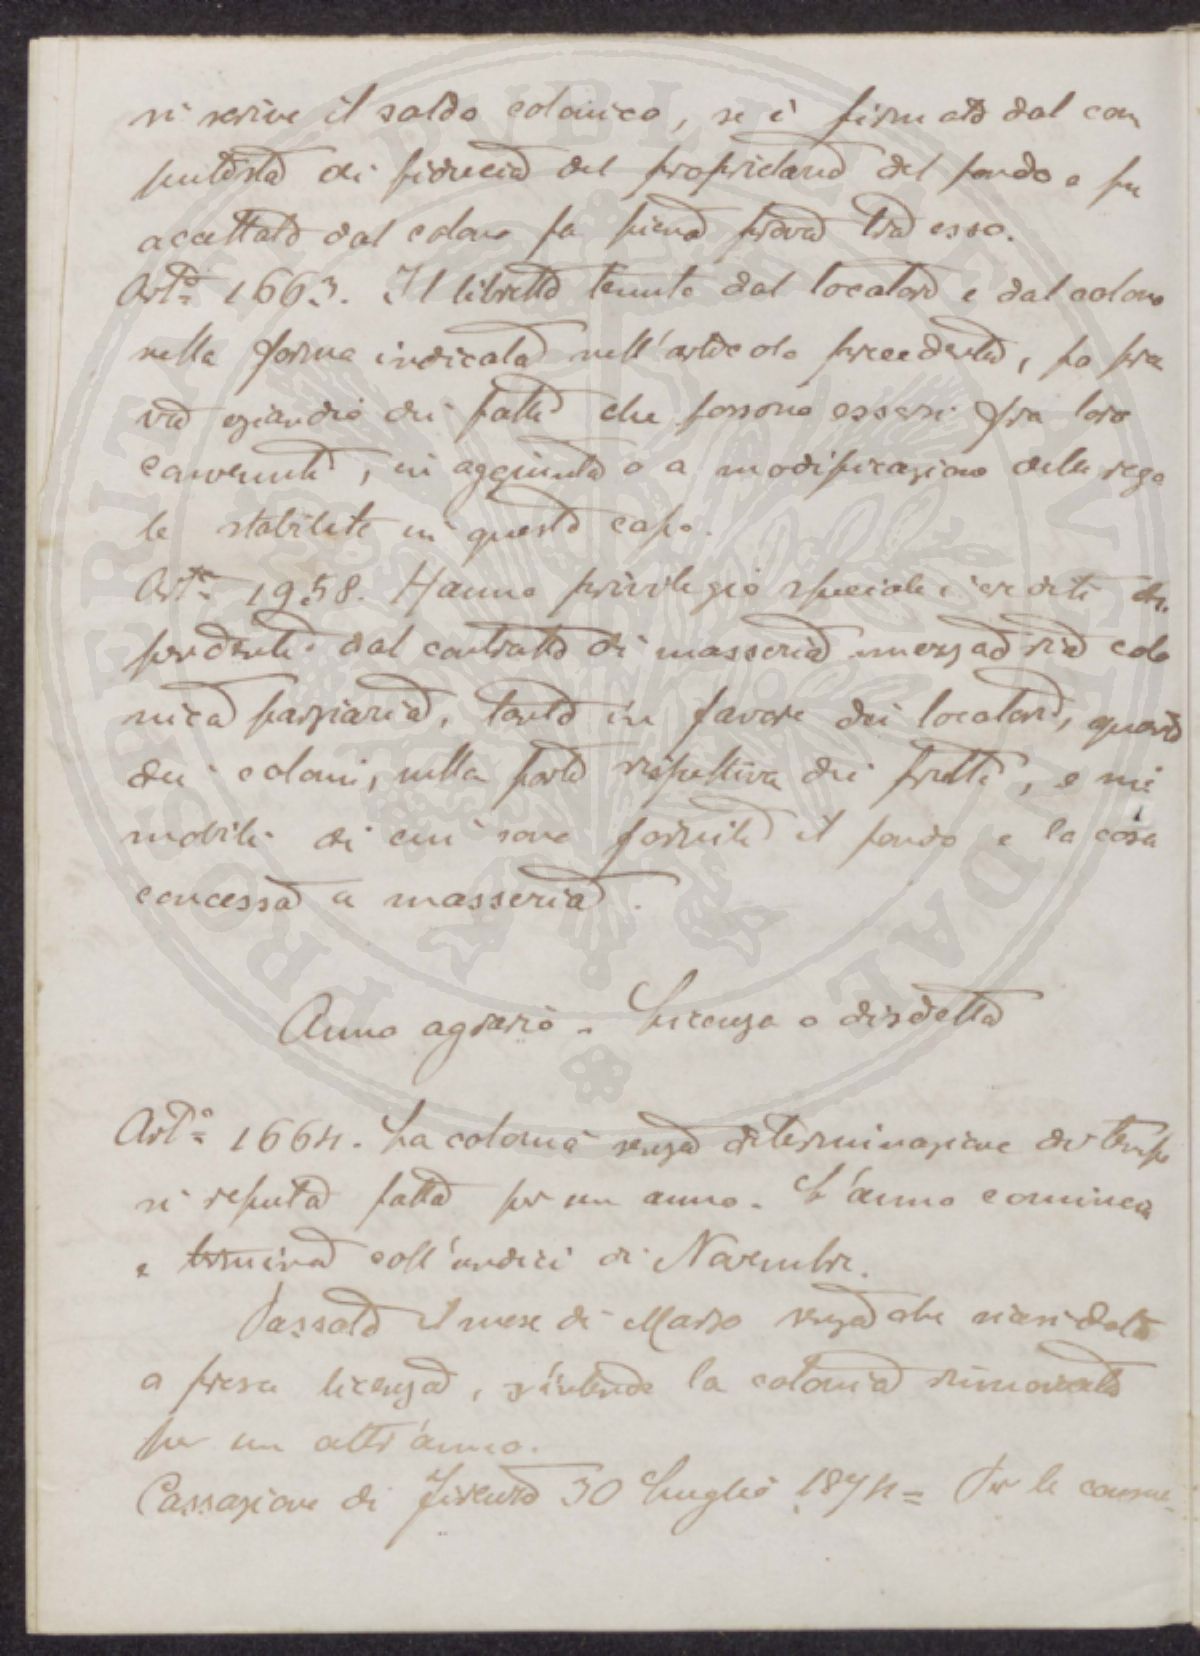 si scrive il saldo colonico, se è firmato dal com
putista di fiducia del proprietario del fondo e fu
accettato dal colono fa piena prova tra esso.
Art.º 1663. Il libretto tenuto dal locatore e dal colono
nella forma indicata nell'articolo precedente, fa pro
va eziandio dei patti che possono essersi fra loro
convenuti, in aggiunta o a modificazione delle rego
le stabilite in questo capo.
Art.º 1958. Hanno privilegio speciale i crediti di
pendenti dal contratto di masseria mezzadria colo
nica parziaria, tanto in favore dei locatori, quanto
dei coloni, sulla parte rispettiva dei frutti, e sui
mobili di cui sono forniti il fondo e la casa
concessa a masseria.
Anno agrario - Licenza o disdetta
Art.º 1664. La colonia senza determinazione di tempo
si reputa fatta per un anno. L'anno comincia
e termina coll'undici di Novembre.
Passato il mese di Marzo senza che siasi data
o presa licenza, s'intende la colonia rinnovata
per un altr'anno.
Cassazione di Firenze 30 Luglio 1874 = Per le consue-
PROSPERITATI PVBLICAE AVGENDAE